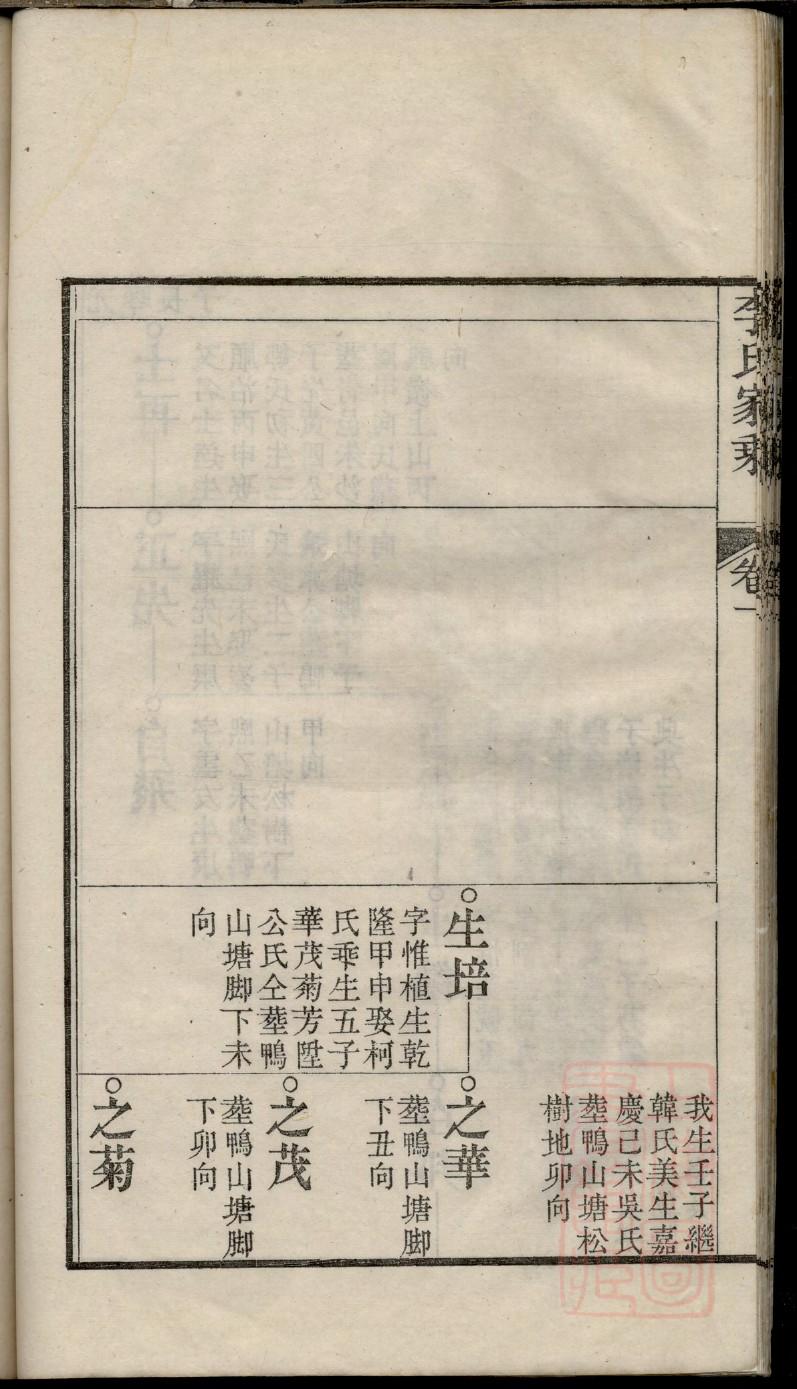 李氏家乘
卷一
生培
字惟植生乾
隆甲申娶柯
氏乖生五子
華茂菊芳陞
公氏仝塟鴨
山塘脚下未
向
我生壬子繼
韓氏美生嘉
慶己未吳氏
塟鴨山塘松
樹地卯向
之華
塟鴨山塘脚
下丑向
之茂
塟鴨山塘脚
下卯向
之菊